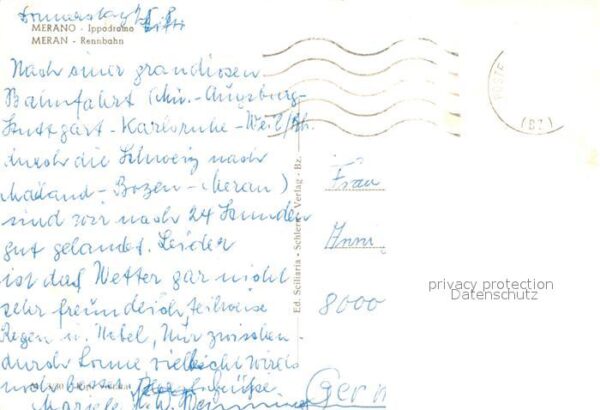 Donnerstag
MERANO - Ippodromo
MERAN - Rennbahn
Nach einer grandiosen
Bahnfahrt (Mü.-Augsburg-
Stuttgart-Karlsruhe-Weil/Rh.
durch die Schweiz nach
Mailand-Bozen-Meran)
sind wir nach 24 Stunden
gut gelandet. Leider
ist das Wetter gar nicht
sehr freundlich, teilweise
Regen u. Nebel, Nur zwischen-
durch Sonne, vielleicht wirds
noch besser. Grüße
Ed. Sciliaria - Schlern - Verlag - Bz.
POSTE
(BZ)
Frau
8000
privacy protection
Datenschutz